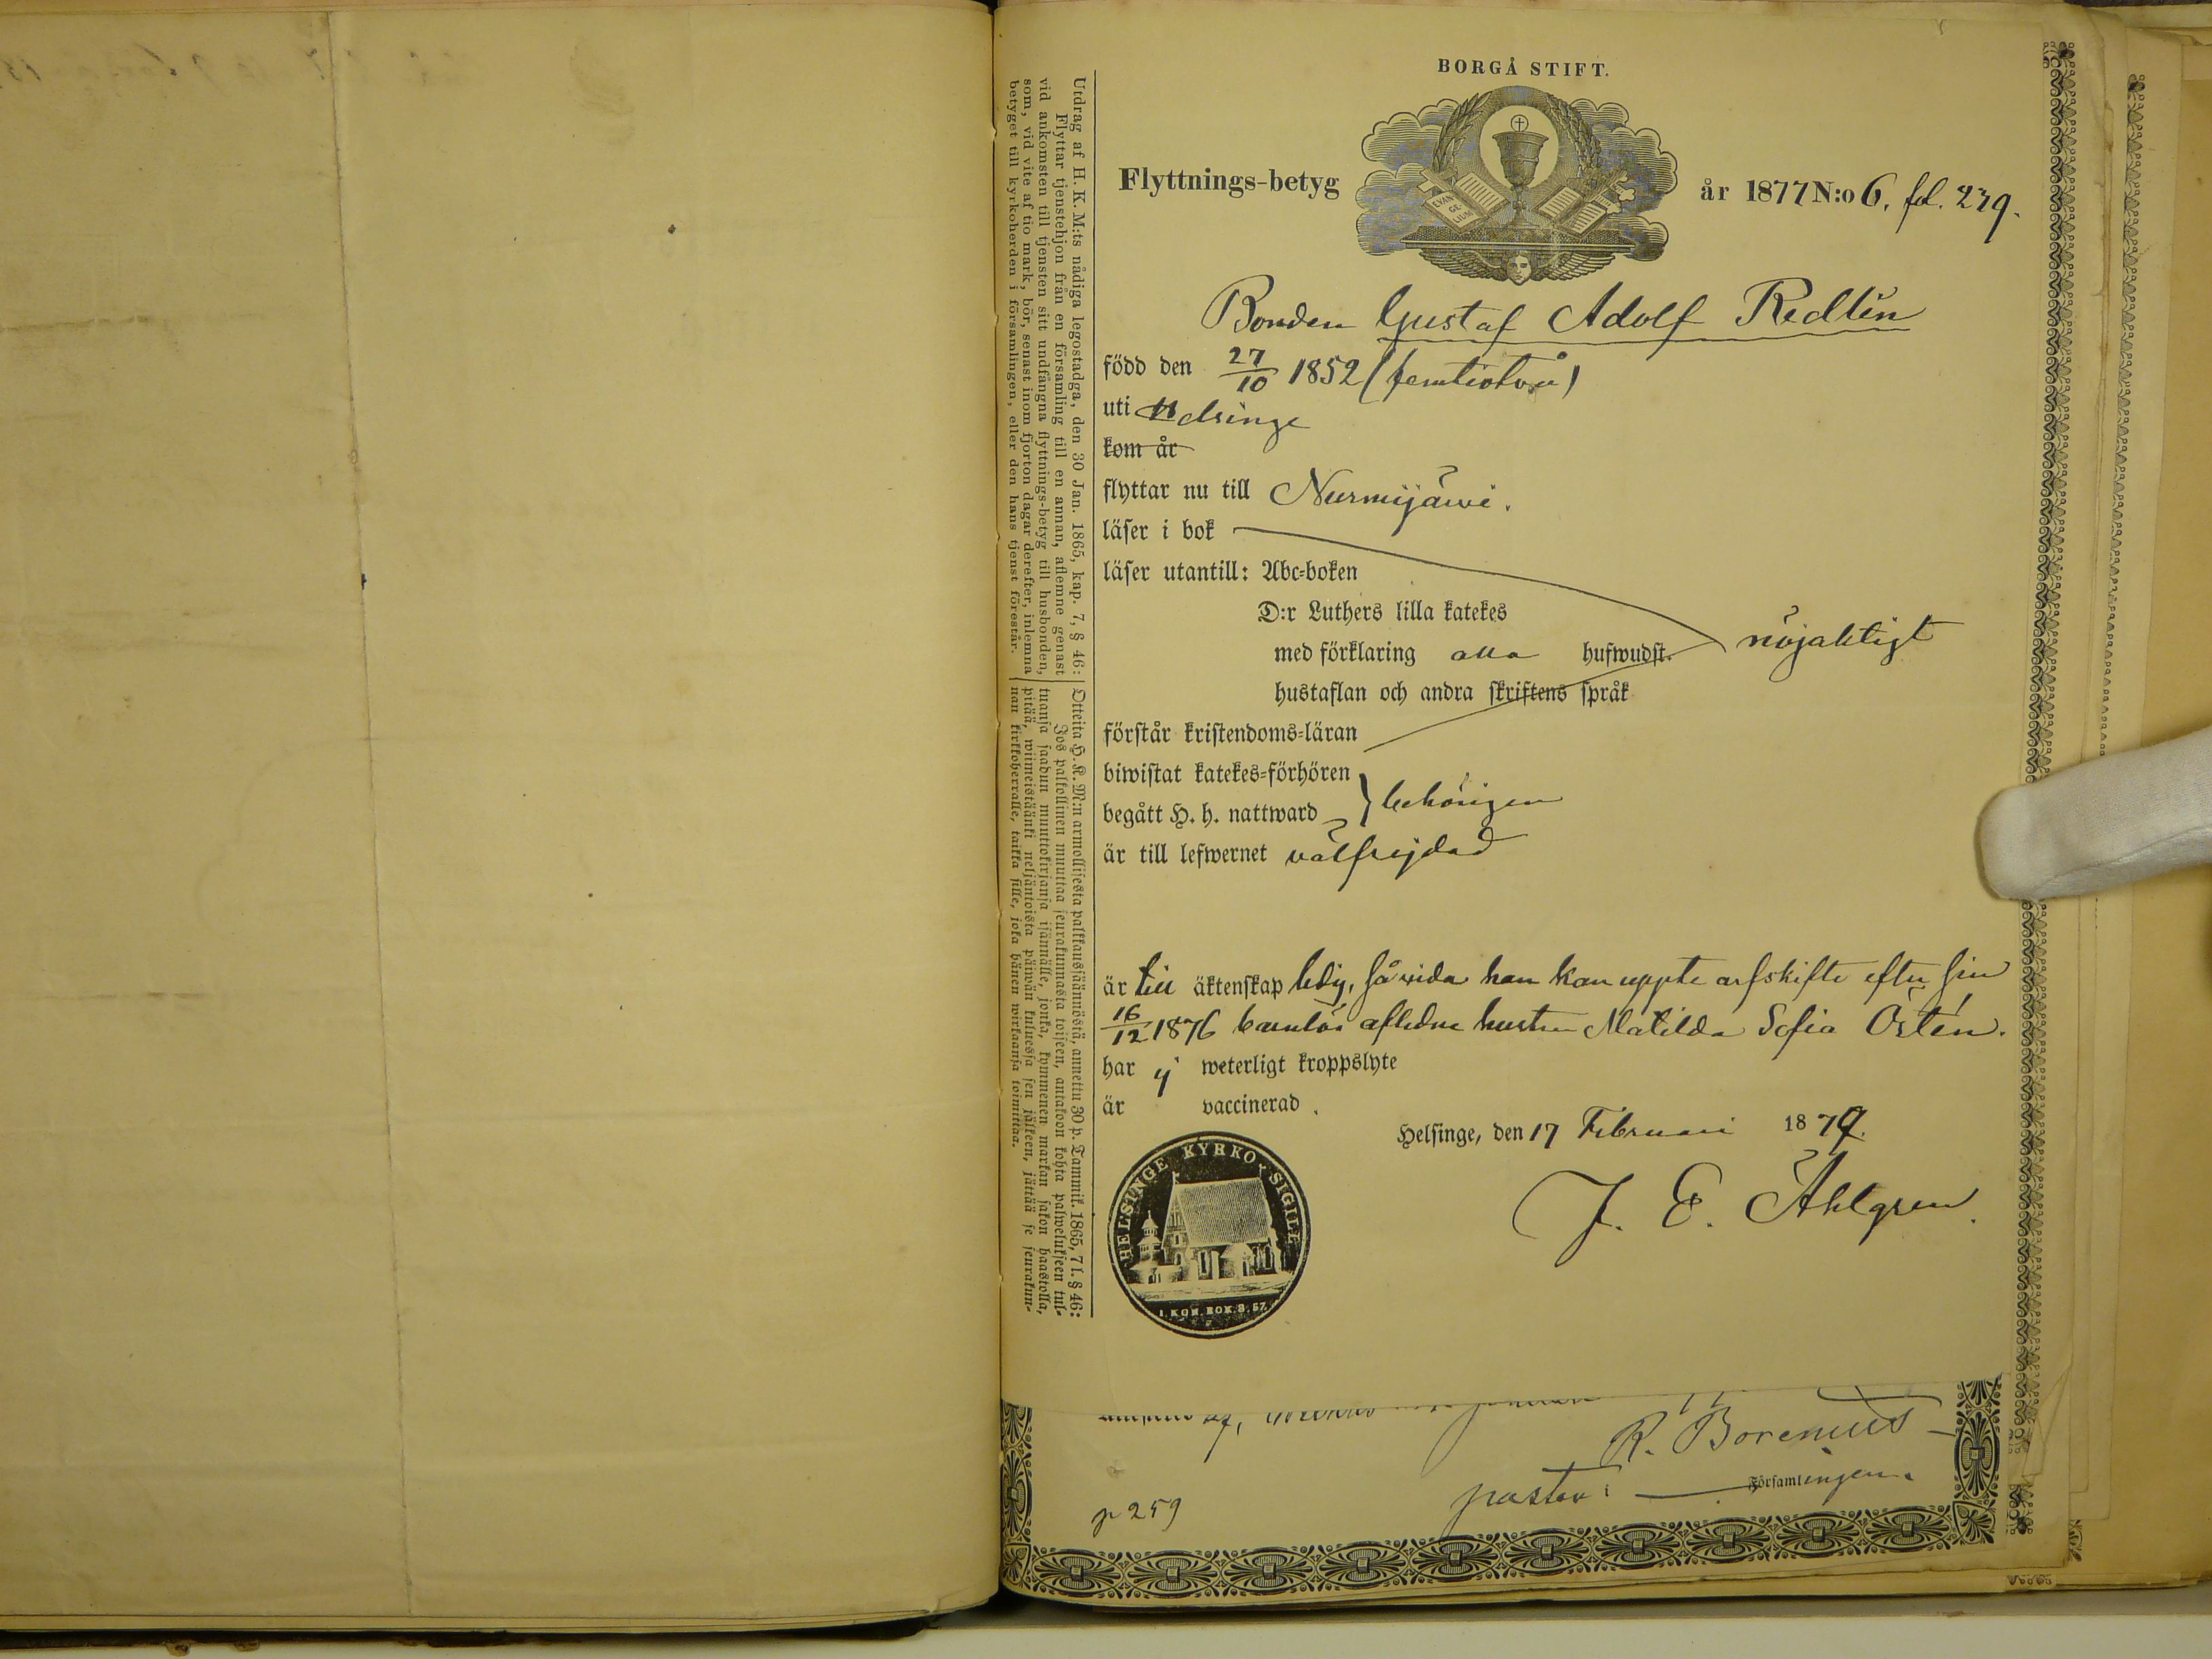 BORGÅ STIFT.
EVAN
GE-
LIUM
Flyttnings-betyg år 1877 N:o 6. fol. 279.
Bonden Gustaf Adolf Redlin
född den 27/10 1852 (femtiotvå)
uti Helsinge
kom år
flyttar nu till Nurmijärvi.
läser i bok
läser utantill: Abc-boken
D:r Luthers lilla katekes
med förklaring alla hufwudst.
nöjaktigt
hustaflan och andra skriftens språk
förstår kristendoms-läran
biwistat katekes-förhören
begått H. h. nattward } behörigen
är till lefwernet välfrejdad
är till äktenskap ledig, såvida han kan uppte arfskifte efter sin
16/12 1876 barnlös aflidne hustru Matilda Sofia Östén.
har ej weterligt kroppslyte
är vaccinerad.
Helsinge, den 17 Februari 1877.
J. E. Ahlgren.
HELSINGE KYRKO SIGILL
1. KON. BOK. 8. 57.
Utdrag af H. K. M:ts nådiga legostadga, den 30 Jan. 1865, kap. 7, § 46:
Flyttar tjenstehjon från en församling till en annan, aflemne genast
vid ankomsten till tjensten sitt undfångna flyttnings-betyg till husbonden,
som, vid vite af tio mark, bör, senast inom fjorton dagar derefter, inlemna
betyget till kyrkoherden i församlingen, eller den hans tjenst förestår.
Otteita H. K. M:n armollisesta palkkaussäännöstä, annettu 30 p. Tammik. 1865, 7 l. § 46:
Jos palkollinen muuttaa seurakunnasta toiseen, antakoon kohta palwelukseen tul-
tuansa saadun muuttokirjansa isännälle, jonka, kymmenen markan sakon haastolla,
pitää, wiimeistäänki neljäntoista päiwän kuluessa sen jälkeen, jättää se seurakun-
nan kirkkoherralle, taikka sille, joka hänen wirkaansa toimittaa.
R. Borenius
pastor i Församlingen.
p 259